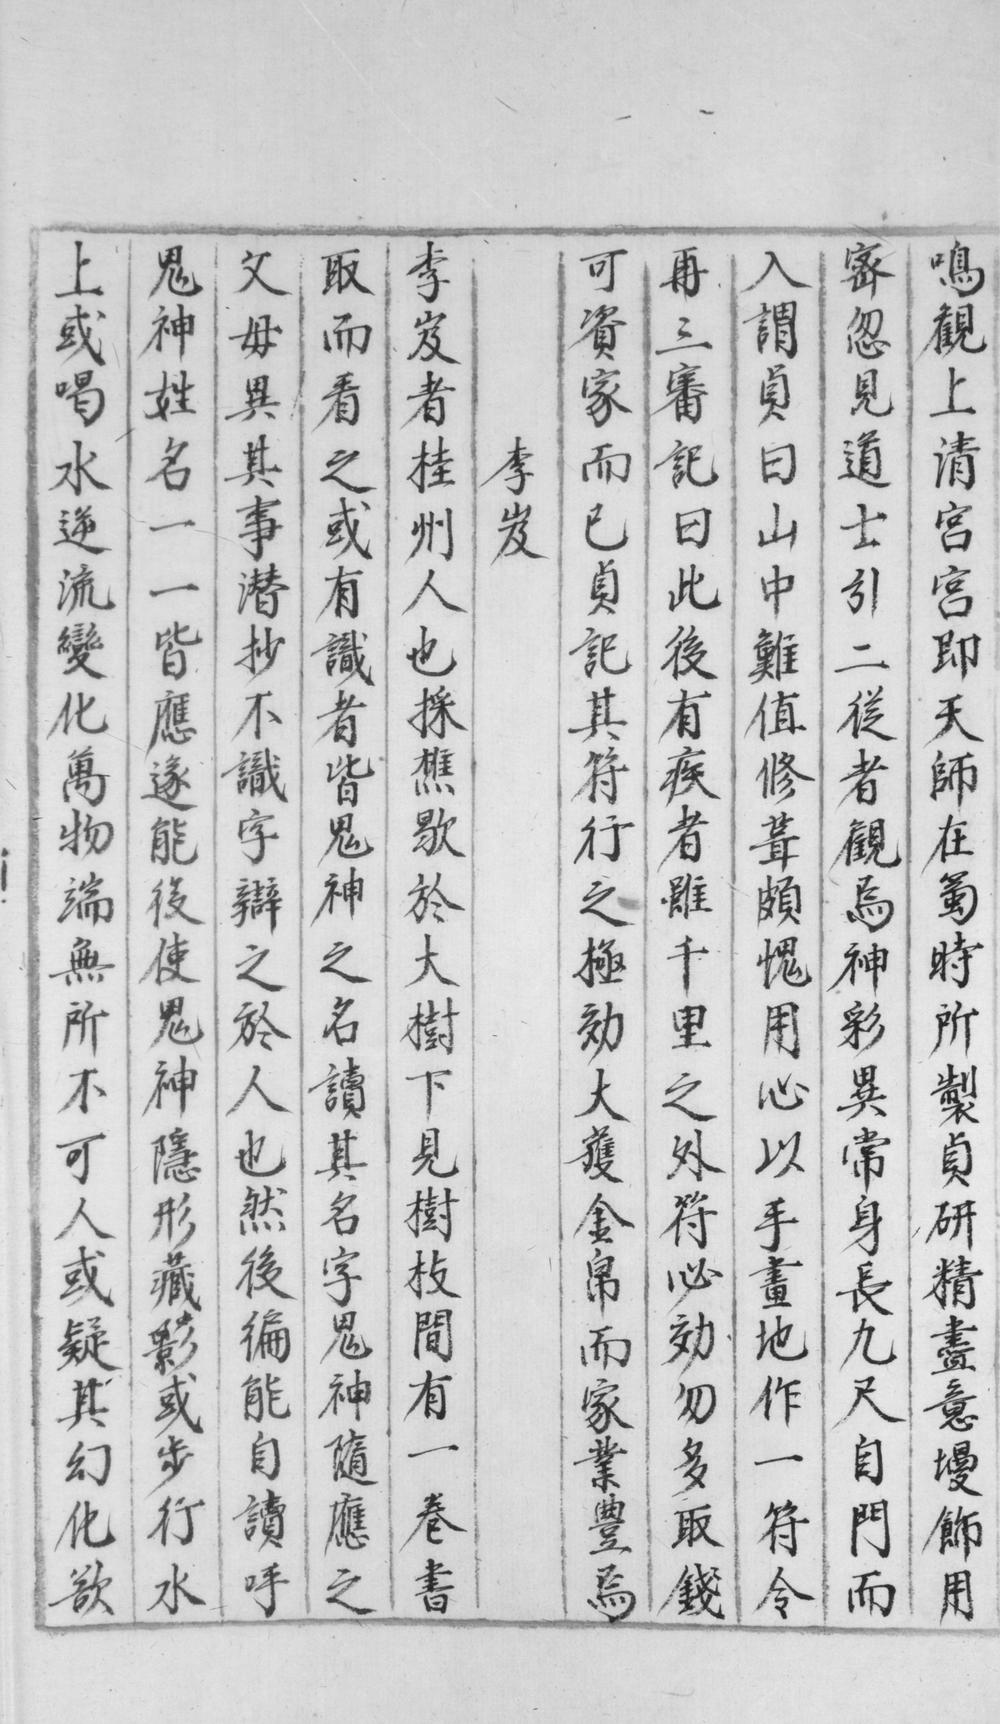 鳴觀上清宮宮即天師在蜀時所製貞研精盡意墁飾用
寄忽見道士引二從者觀焉神彩異常身長九尺自門而
入謂貞曰山中難值修葺頗愧用心以手畫地作一符令
再三審記曰此後有疾者雖千里之外符必効勿多取錢
可資家而已貞記其符行之極効大獲金帛而家業豐焉
李岌
李岌者桂州人也採樵歇於大樹下見樹枝間有一卷書
取而看之或有識者皆鬼神之名讀其名字鬼神隨應之
父毋異其事潛抄不識字辯之於人也然後徧能自讀呼
鬼神姓名一一皆應遂能役使鬼神隱形藏影或步行水
上或喝水逆流變化萬物端無所不可人或疑其幻化欲